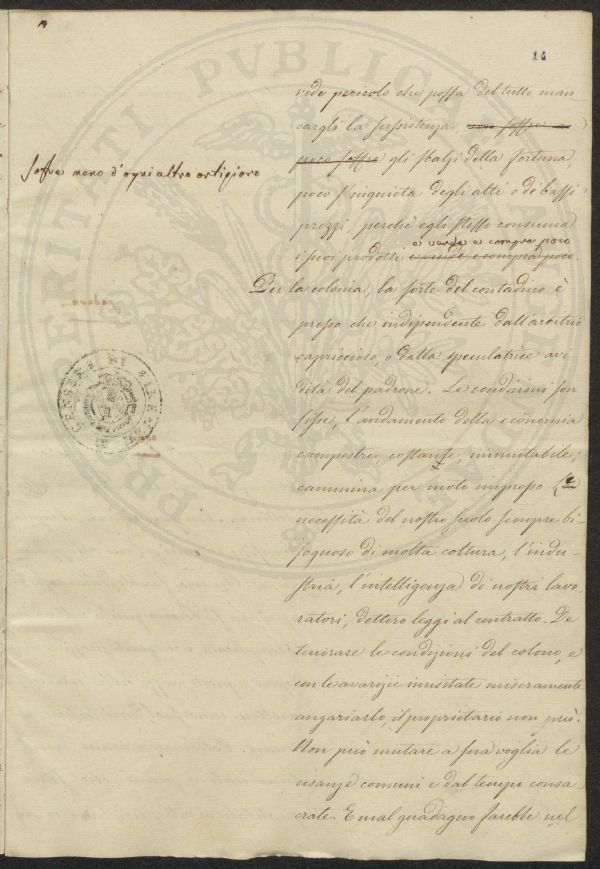 14
vede pericolo che possa del tutto man-
cargli la sussistenza,
poco soffre gli sbalzi della fortuna,
Soffre meno d'ogni altro artigiano
poco s'inquieta degli alti o de' bassi
prezzi, perchè egli stesso consuma
o vende o compra poco
i suoi prodotti e vende e compra poco.
Per la colonia, la sorte del contadino è
presso che indipendente dall'arbitrio
capriccioso, o dalla speculatrice avi-
dità del padrone. Le condizioni son
fisse, l'andamento della economia
campestre, costante, immutabile;
cammina per moto impresso. Le
necessità del nostro suolo sempre bi-
sognoso di molta coltura, l'indu-
stria, l'intelligenza de' nostri lavo-
ratori, dettero leggi al contratto. De
teriorare le condizioni del colono, e
con le avarizie inusitate miseramente
angariarlo, il proprietario non può.
Non può mutare a sua voglia le
usanze comuni e dal tempo consa
crate. E mal guadagno farebbe nel
PROSPERITATI PVBLICAE
CENSURA DI FIRENZE